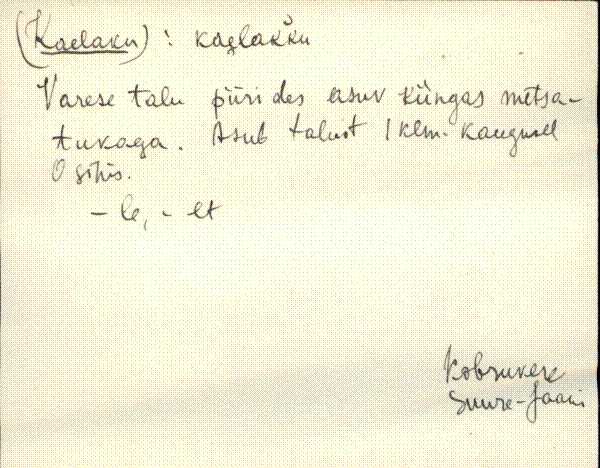 (Kaelaku) : kaglakku
Varese talu piirides asuv küngas metsa-
tukaga. Asub talust 1 klm. kaugusel
O sihis.
- le, - lt
Kobruvere
Suure-Jaani